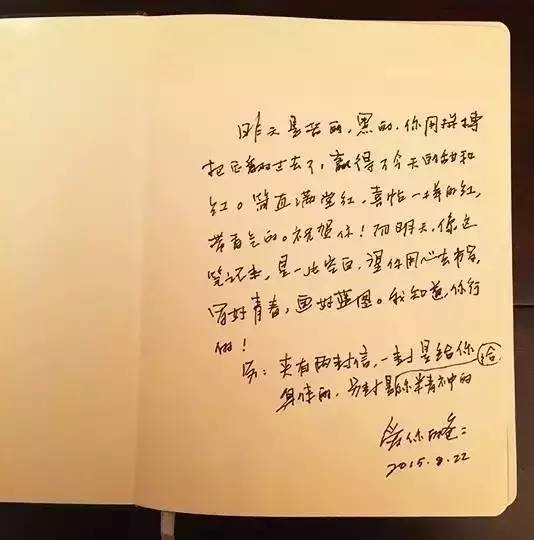 昨天是苦的,黑的。你用拼搏
把它翻过去了,赢得了今天的甜和
红。简直满堂红,喜帖一样的红,
带香气的。祝贺你!而明天,像这
笔记本,是一片空白,望你用心去书写,
写好青春,画好蓝图。我知道,你行
的!
另:夹有两封信,一封是给你
身体的,另封是你精神的 给
爱你的爸:
2015.8.22